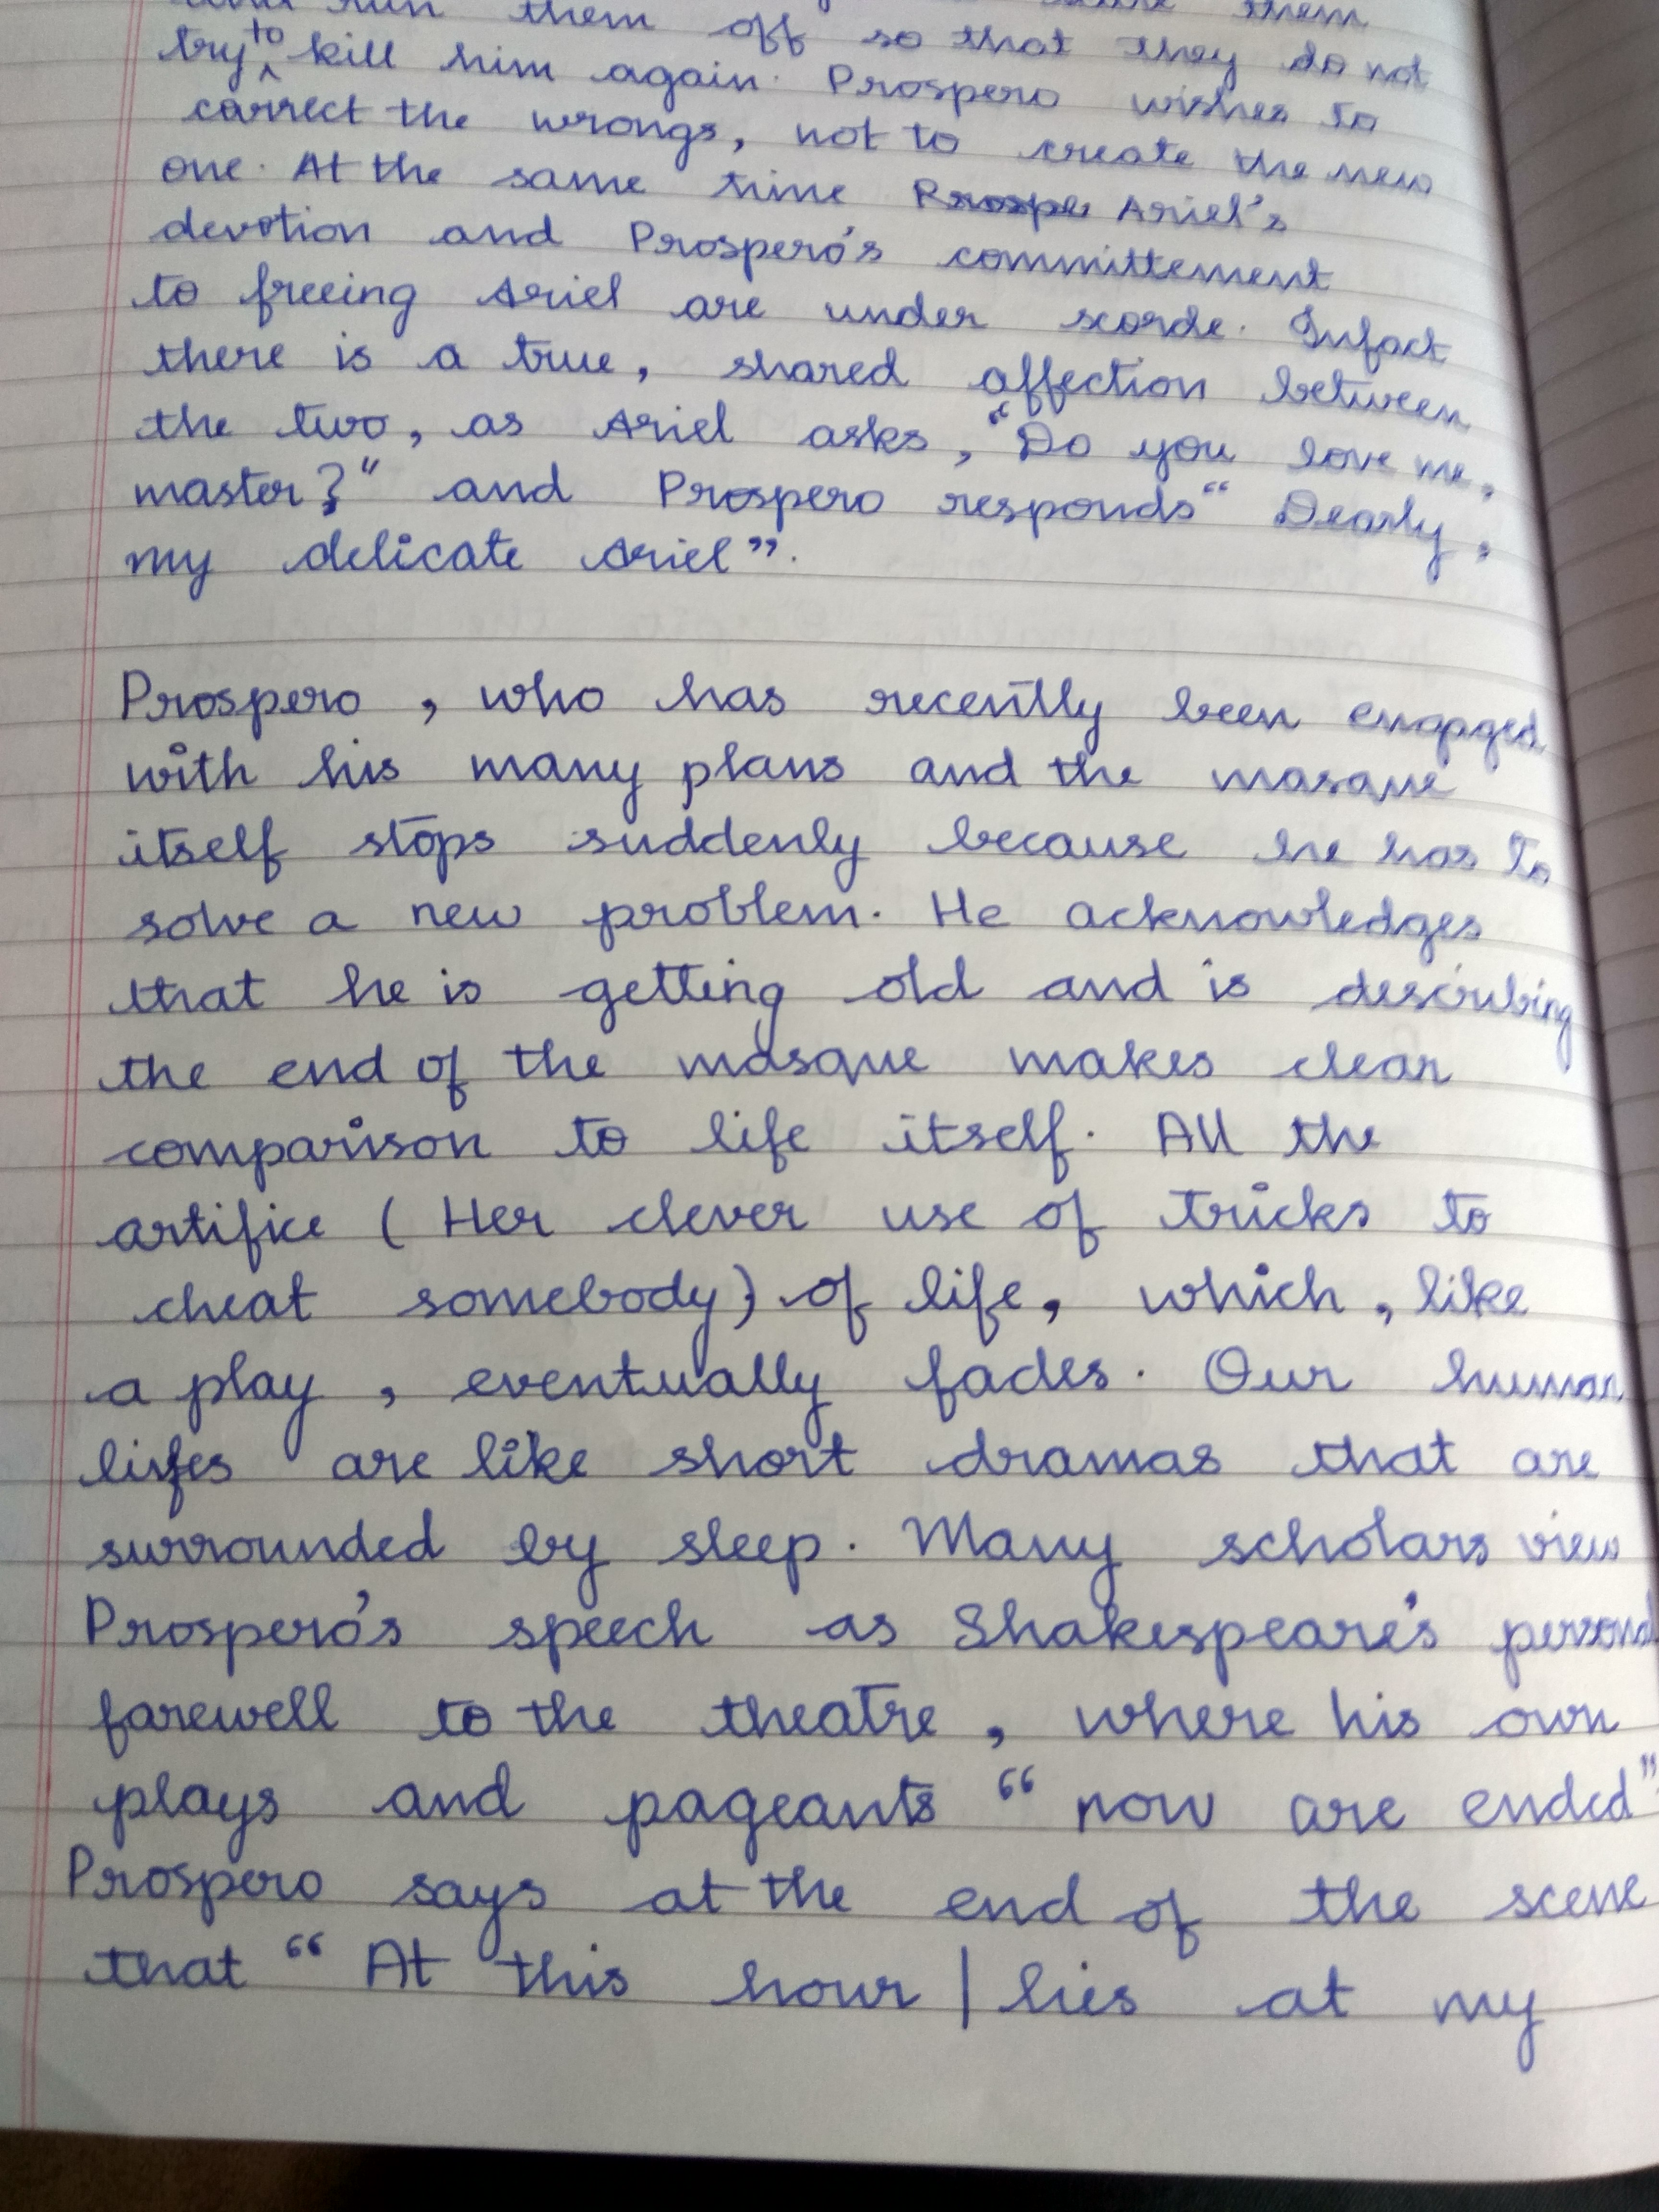 run them off so that they do not
try to kill him again. Prospero wishes to
correct the wrongs, not to create the new
one. At the same time Prospe Ariel's
devotion and Prospero's committement
to freeing Ariel are under scorde. Infact
there is a true, shared affection between
the two, as Ariel asks, "Do you love me,
master?" and Prospero responds "Dearly,
my delicate Ariel".
Prospero, who has recently been engaged
with his many plans and the masque
itself stops suddenly because he has to
solve a new problem. He acknowledges
that he is getting old and is describing
the end of the masque makes clear
comparison to life itself. All the
artifice (Her clever use of tricks to
cheat somebody) of life, which, like
a play, eventually fades. Our human
lifes are like short dramas that are
surrounded by sleep. Many scholars view
Prospero's speech as Shakespeare's personal
farewell to the theatre, where his own
plays and pageants "now are ended"
Prospero says at the end of the scene
that "At this hour | lies at my